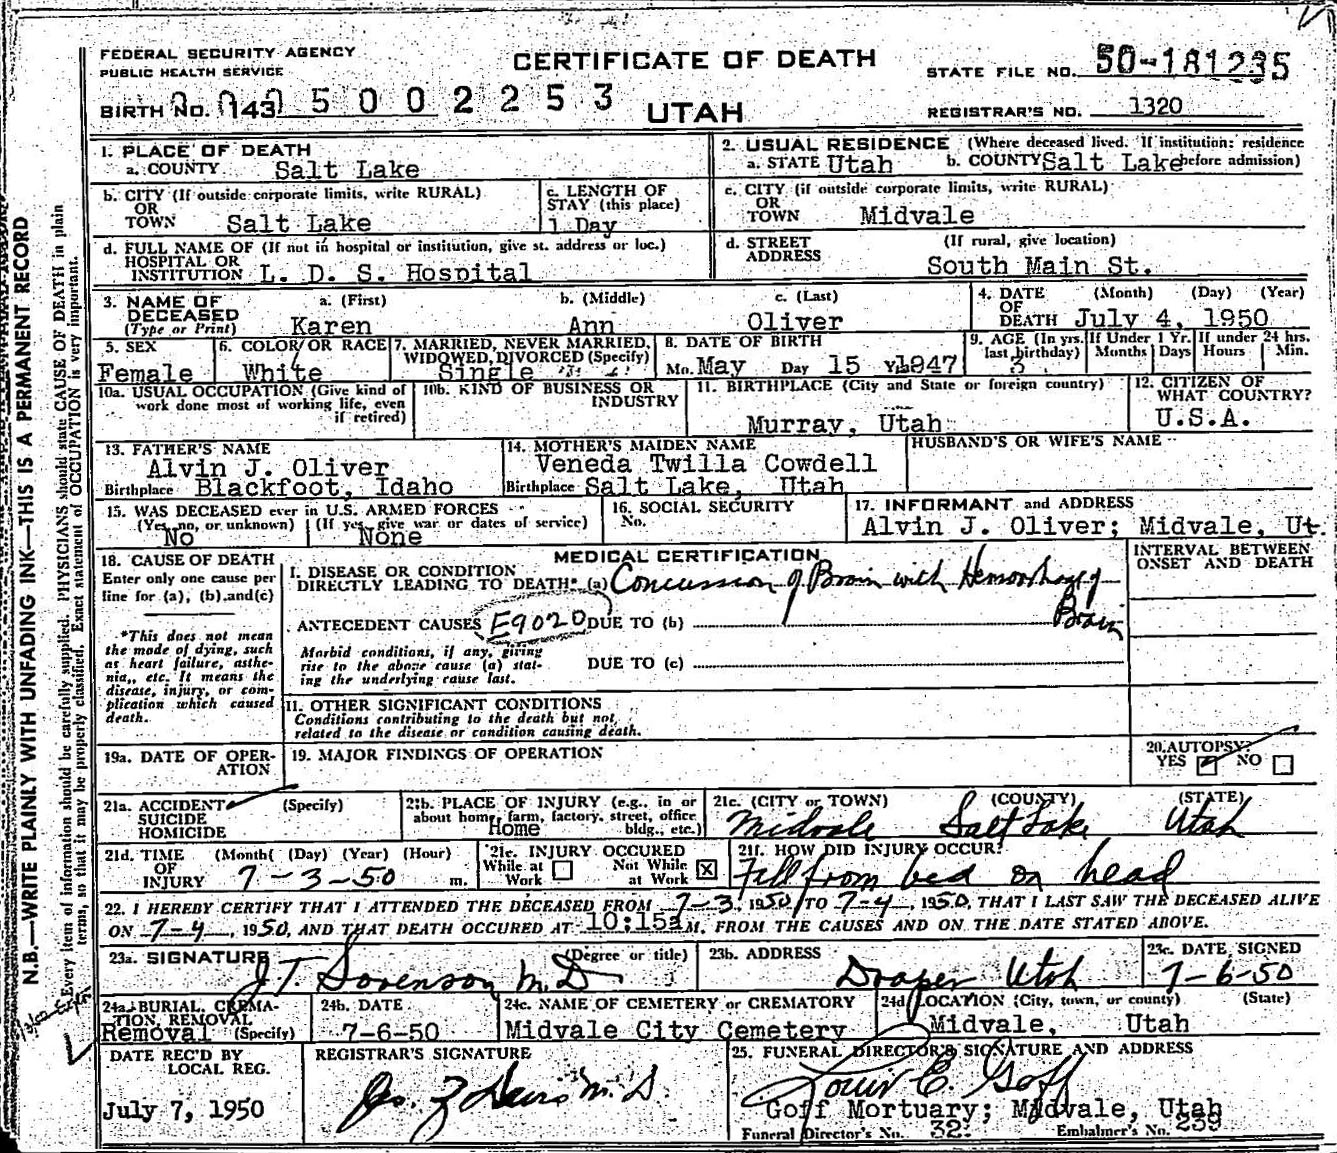 FEDERAL SECURITY AGENCY
PUBLIC HEALTH SERVICE
CERTIFICATE OF DEATH
UTAH
STATE FILE NO. 50-181235
BIRTH NO. 143 5002253
REGISTRAR'S NO. 1320
N.B.—WRITE PLAINLY WITH UNFADING INK—THIS IS A PERMANENT RECORD
Every item of information should be carefully supplied. PHYSICIANS should state CAUSE OF DEATH in plain
terms, so that it may be properly classified. Exact statement of OCCUPATION is very important.
1. PLACE OF DEATH
a. COUNTY Salt Lake
2. USUAL RESIDENCE (Where deceased lived. If institution: residence
a. STATE Utah b. COUNTY Salt Lake before admission)
b. CITY (If outside corporate limits, write RURAL)
OR
TOWN Salt Lake
c. LENGTH OF
STAY (this place)
1 Day
c. CITY (if outside corporate limits, write RURAL)
OR
TOWN Midvale
d. FULL NAME OF (If not in hospital or institution, give st. address or loc.)
HOSPITAL OR
INSTITUTION L. D. S. Hospital
d. STREET (If rural, give location)
ADDRESS
South Main St.
3. NAME OF
DECEASED
(Type or Print)
a. (First) b. (Middle) c. (Last)
Karen Ann Oliver
4. DATE (Month) (Day) (Year)
OF
DEATH July 4, 1950
5. SEX
Female
6. COLOR OR RACE
White
7. MARRIED, NEVER MARRIED,
WIDOWED, DIVORCED (Specify)
Single
8. DATE OF BIRTH
Mo. May Day 15 Yr. 1947
9. AGE (In yrs. last birthday)
3
If Under 1 Yr.
Months Days
If under 24 hrs.
Hours Min.
10a. USUAL OCCUPATION (Give kind of
work done most of working life, even
if retired)
10b. KIND OF BUSINESS OR
INDUSTRY
11. BIRTHPLACE (City and State or foreign country)
Murray, Utah
12. CITIZEN OF
WHAT COUNTRY?
U.S.A.
13. FATHER'S NAME
Alvin J. Oliver
Birthplace Blackfoot, Idaho
14. MOTHER'S MAIDEN NAME
Veneda Twilla Cowdell
Birthplace Salt Lake, Utah
HUSBAND'S OR WIFE'S NAME
15. WAS DECEASED ever in U.S. ARMED FORCES
(Yes, no, or unknown) (If yes, give war or dates of service)
No None
16. SOCIAL SECURITY
No.
17. INFORMANT and ADDRESS
Alvin J. Oliver; Midvale, Ut.
18. CAUSE OF DEATH
Enter only one cause per
line for (a), (b), and (c)
*This does not mean
the mode of dying, such
as heart failure, asthe-
nia, etc. It means the
disease, injury, or com-
plication which caused
death.
MEDICAL CERTIFICATION
INTERVAL BETWEEN
ONSET AND DEATH
I. DISEASE OR CONDITION
DIRECTLY LEADING TO DEATH* (a) Concussion of Brain with Hemorrhage of
Brain
ANTECEDENT CAUSES E9020 DUE TO (b)
Morbid conditions, if any, giving
rise to the above cause (a) stat-
ing the underlying cause last.
DUE TO (c)
11. OTHER SIGNIFICANT CONDITIONS
Conditions contributing to the death but not
related to the disease or condition causing death.
19a. DATE OF OPER-
ATION
19. MAJOR FINDINGS OF OPERATION
20. AUTOPSY?
YES NO
21a. ACCIDENT (Specify)
SUICIDE
HOMICIDE
21b. PLACE OF INJURY (e.g., in or
about home, farm, factory, street, office
Home bldg., etc.)
21c. (CITY or TOWN) (COUNTY) (STATE)
Midvale Salt Lake Utah
21d. TIME (Month) (Day) (Year) (Hour)
OF
INJURY 7-3-50 m.
21e. INJURY OCCURED
While at Work Not While at Work X
21f. HOW DID INJURY OCCUR?
Fell from bed on head
22. I HEREBY CERTIFY THAT I ATTENDED THE DECEASED FROM 7-3, 1950, TO 7-4, 1950, THAT I LAST SAW THE DECEASED ALIVE
ON 7-4, 1950, AND THAT DEATH OCCURED AT 10:15a M. FROM THE CAUSES AND ON THE DATE STATED ABOVE.
23a. SIGNATURE (Degree or title)
J. T. Sorenson M.D
23b. ADDRESS
Draper Utah
23c. DATE SIGNED
7-6-50
24a. BURIAL, CREMA-
TION, REMOVAL
Removal (Specify)
24b. DATE
7-6-50
24c. NAME OF CEMETERY or CREMATORY
Midvale City Cemetery
24d LOCATION (City, town, or county) (State)
Midvale, Utah
DATE REC'D BY
LOCAL REG.
July 7, 1950
REGISTRAR'S SIGNATURE
25. FUNERAL DIRECTOR'S SIGNATURE AND ADDRESS
Louis E. Goff
Goff Mortuary; Midvale, Utah
Funeral Director's No. 32 Embalmer's No. 239